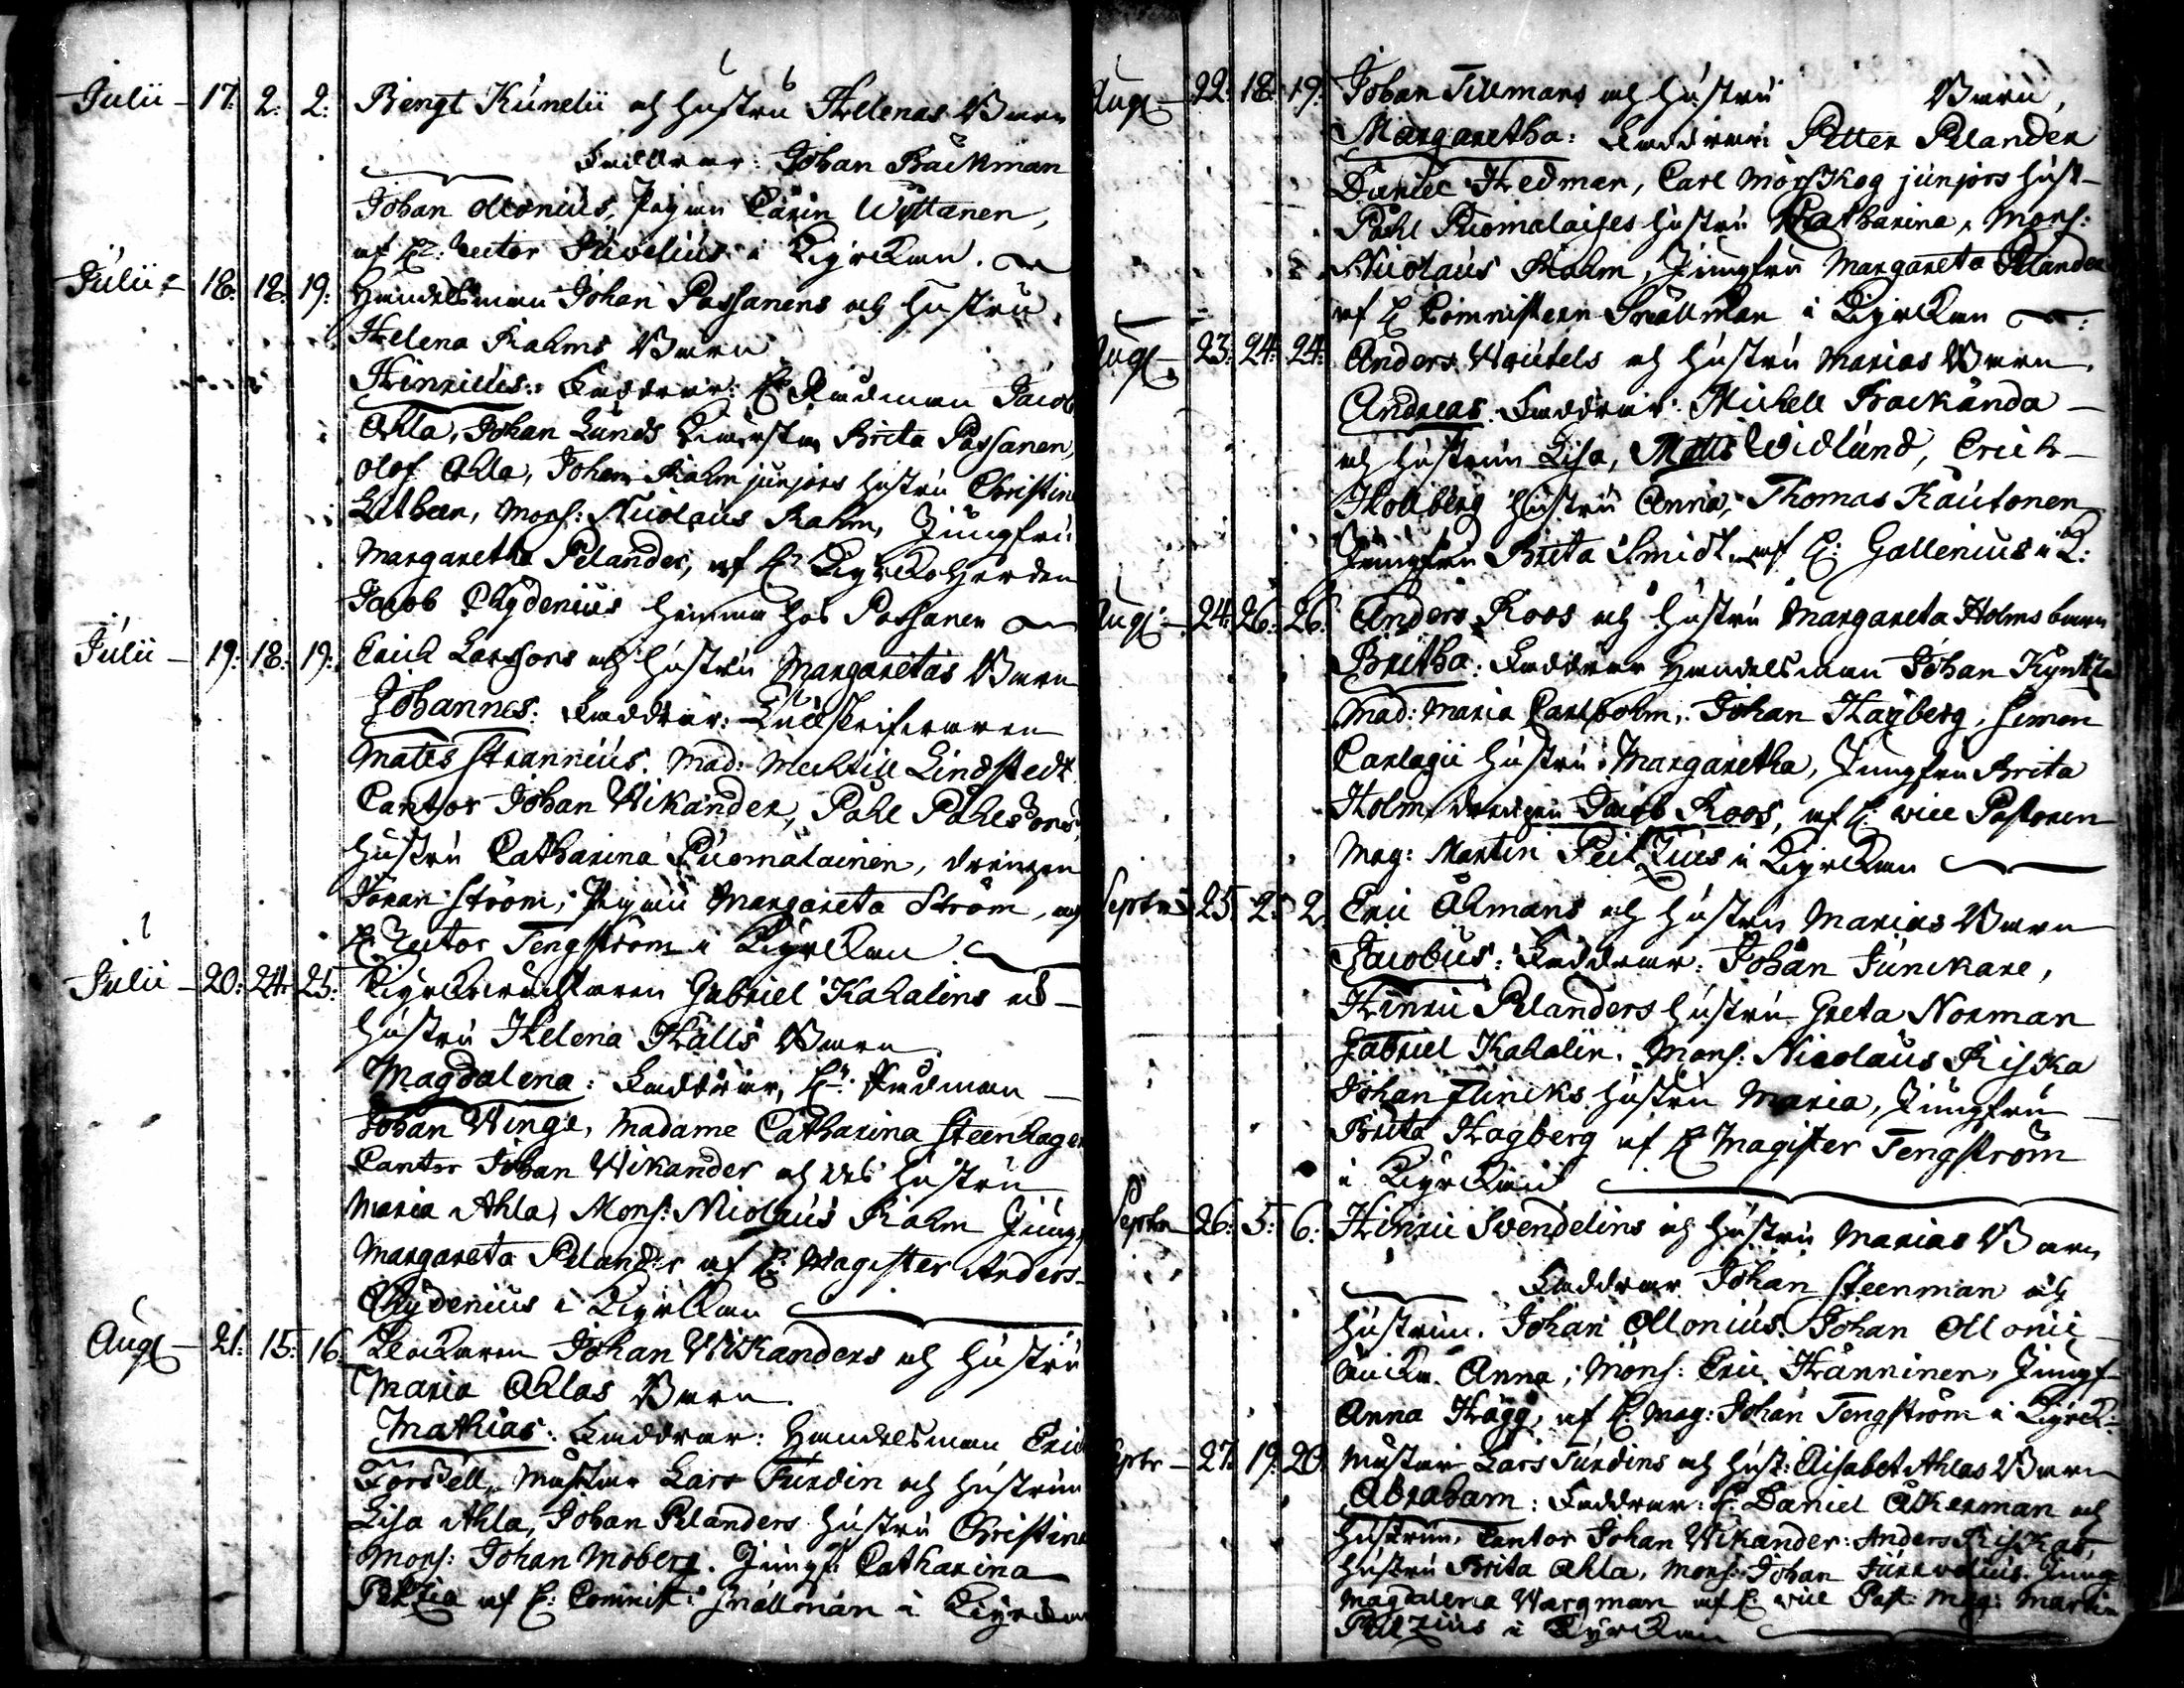 Julii – 17: 2: 2: Bengt Kunelii och hustru Hellenas Barn
Faddrar: Johan Backman
Johan Ollonius, Pigan Carin Wyttanen,
af H: Rector Juvelius i Kyrckan.
Julii – 18: 18: 19: Handelsman Johan Passanens och hustru
Helena Rahms Barn
Henricus: Faddrar: H: Rådman Jacob
Ahla, Johan Lunds Enckerstin Brita Passanen,
Olof Ahla, Johan Rahm junjors hustru Christin
Litheen, Mons: Nicolaus Rahm, Jungfru
Margaretha Pelander, af H: Kyrckoherden
Jacob Chydenius hemma hos Passanen
Julii – 19: 18: 19: Erich Larssons och hustru Margaretas Barn
Johannes: Faddrar: Tullskrifwaren
Mates Strannius. Mad: Mechtill Lindstedt
Cantor Johan Wikander, Påhl Påhlssons
hustru Catharina Puomalainen, drengen
Johan Ström, Pigan Margareta Ström, af
H: Rector Tengström i Kyrckan
Julii – 20: 24: 25: Kyrckowachtaren Gabriel Kahalins och
hustru Helena Hälls Barn
Magdalena: Faddrar, H: Rådman
Johan Winge, Madame Catharina Steenhagen
Cantor Johan Wikander och des hustru
Maria Ahla, Mons: Niolaus Rahm Jungf
Margareta Pelander af H: Magister Anders
Chydenius i Kyrckan
Aug – 21: 15: 16 Klockaren Johan Wikanders och hustru
Maria Ahlas Barn.
Mathias: Faddrar: Handelsman Eric
Forssell, Mustar Lars Jurdin och hustrun
Lisa Ahla, Johan Pelanders hustru Christina
Mons: Johan Moberg. Jungf: Catharina
Peitzia af H: Commist: Snällman i Kyrckan
Aug – 22: 18: 19: Johan Tillmans och hustru Barn,
Margaretha: Faddrar: Petter Pelander
Daniel Hedman, Carl Mörskog junjors hust–
Påhl Puomalaises hustru Catharina, Mons:
Nicolaus Rahm, Jungfru Margareta Pelander
af H Comnistern Snällman i Kyrckan
Aug – 23: 24: 24: Anders Wäutels och hustru Marias Barn
Andreas. Faddrar: Michell Backända –
och hustrun Lisa, Matts Widlund, Erich –
Hollberg hustru Anna, Thomas Kautonen
Jungfru Brita Smidt af H: Gallenius i K:
Aug: – 24: 26: 26: Anders Roos och hustru Margareta Holms barn
Britha: Faddrar Handelsman Johan Kyntzell
Mad: Maria Carlbohm, Johan Hagberg, Simon
Carlagii hustru Margaretha, Jungfru Brita
Holm, drengen Jacob Roos, af H: vice Pastoren
Mag: Martin Peitzius i Kyrckan
Septr – 25. 2: 2 Eric Åkmans och hustru Marias Barn
Jacobus: Faddrar: Johan Junckare,
Hinric Pelanders hustru Greta Norman
Gabriel Kahalin. Mons: Nicolaus Riska
Johan Flincks hustru Maria, Jungfru –
Brita Hagberg af H Magister Tengström
i Kyrckan
Septr – 26: 5: 6: Hinric Svendelins och hustru Marias Barn
Faddrar Johan Steenman och
hustrun. Johan Ollonius. Johan Ollonii –
Encka Anna, Mons: Eric Hänninen, Jungf
Anna Hägg, af H: Mag: Johan Tengström i Kyrck:
Septr – 27: 19: 20 Mustar Lars Jurdins och hust: Elisabet Ahlas Barn
Abraham: Faddrar: H: Daniel Åkerman och
hustrun, Cantor Johan Wikander: Anders Riskas
hustru Brita Ahla, Mons: Johan Jurwelius. Jungf
Magdalena Wargman af H: vice Past: Mag: Martin
Peitzius i Kyrckan